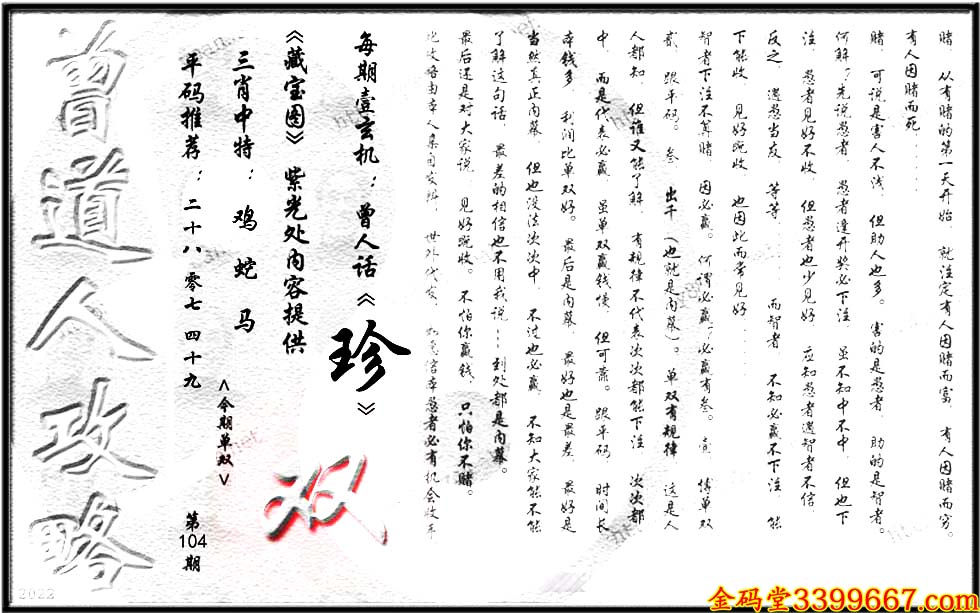 赌 从有赌的第一天开始 就注定有人因赌而富 有人因赌而穷。
有人因赌而死……
赌 可说是害人不浅 但助人也多。 害的是愚者 助的是智者。
何解？先说愚者 愚者逢开奖必下注 虽不知中不中 但也下
注 愚者见好不收 但愚者也少见好 应知愚者遇智者不信
反之 遇愚当友 等等…… 而智者 不知必赢不下注 能
下能收 见好既收 也因此而常见好……
智者下注不算赌 因必赢。何谓必赢？必赢有叁。壹 博单双
贰 跟平码。叁 出千（也就是内幕）。单双有规律 这是人
人都知 但谁又能了解 有规律不代表次次都能下注 次次都
中 而是代表必赢 虽单双赢钱慢 但可靠。跟平码 时间长
本钱多 利润比单双好。最后是内幕 最好也是最差 最好是
当然真正内幕 但也没法次次中 不过也必赢 不知大家能不能
了解这句话 最差的相信也不用我说……到处都是内幕。
最后还是对大家说 见好既收。不怕你赢钱，只怕你不赌。
此攻略由本人集自发辩，世外代友，如急信本愚者必有机会收手
每期壹玄机：曾人话《珍》
《藏宝图》紫光处内容提供
三肖中特：鸡 蛇 马
平码推荐：二十八 零七 四十九
<今期单双>
双
第104期
曾道人攻略
2022
金码堂3399667.com